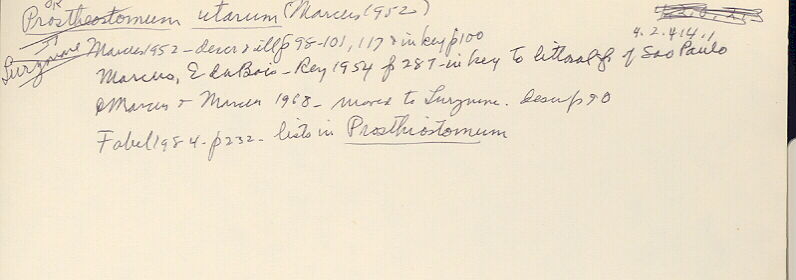 OR
Prostheostomum utarum (Marcus 1952)
4.2.4.14.1
Lurymare Marcus 1952 - descr & ill p 98-101, 117 & in key p 100
Marcus, E duBois-Rey 1954 p 287 - in key to littoral of Sao Paulo
Marcus & Marcus 1968 - moved to Lurymare. descr p 90
Fabel 1984 - p 232 - lists in Prosthiostomum